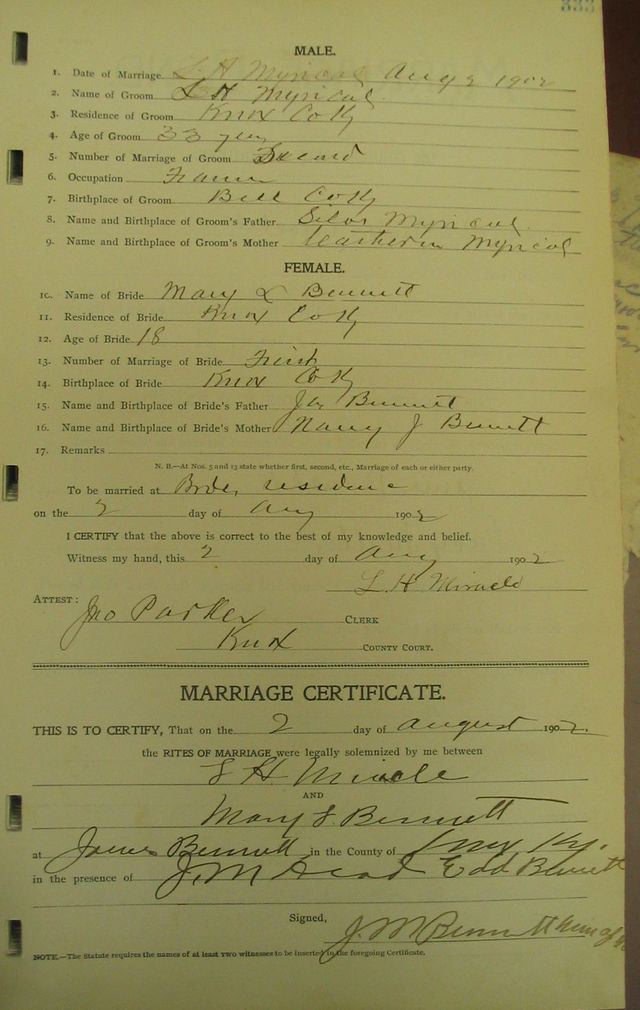 333
MALE.
1. Date of Marriage L H Myrical Aug 2 1902
2. Name of Groom L H Myrical
3. Residence of Groom Knox Co Ky
4. Age of Groom 33 years
5. Number of Marriage of Groom Second
6. Occupation Farmer
7. Birthplace of Groom Bell Co Ky
8. Name and Birthplace of Groom's Father Silas Myrical
9. Name and Birthplace of Groom's Mother Myrical
FEMALE.
10. Name of Bride Mary L Bennett
11. Residence of Bride Knox Co Ky
12. Age of Bride 18
13. Number of Marriage of Bride First
14. Birthplace of Bride Knox Co Ky
15. Name and Birthplace of Bride's Father Bennett
16. Name and Birthplace of Bride's Mother Nancy J Bennett
17. Remarks
N. B.—At Nos. 5 and 13 state whether first, second, etc., Marriage of each or either party.
To be married at Brides residence
on the 2 day of Aug 1902
I CERTIFY that the above is correct to the best of my knowledge and belief.
Witness my hand, this 2 day of Aug 1902
L. H Miracle
ATTEST:
Jno Parker CLERK
Knox COUNTY COURT.
MARRIAGE CERTIFICATE.
THIS IS TO CERTIFY, That on the 2 day of August 1902.
the RITES OF MARRIAGE were legally solemnized by me between
L H. Miracle
AND
Mary L. Bennett
at James Bennett in the County of Knox Ky.
in the presence of J. M Edd Bennett
Signed,
J. M Bennett
NOTE.—The Statute requires the names of at least two witnesses to be inserted in the foregoing Certificate.